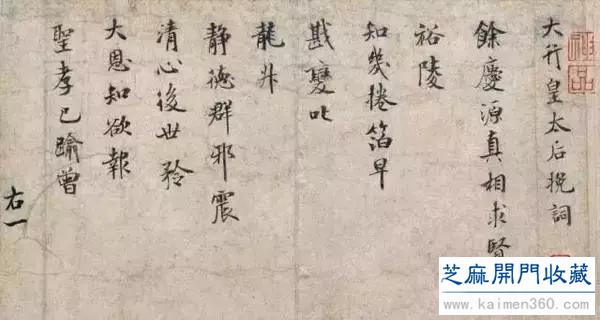 大行皇太后挽詞
餘慶源真相求賢
裕陵
知幾捲箔早
戡變叱
龍升
靜德群邪震
清心後世矜
大恩知欲報
聖孝已踰曾
右一
芝麻開門收藏
www.kaimen360.com